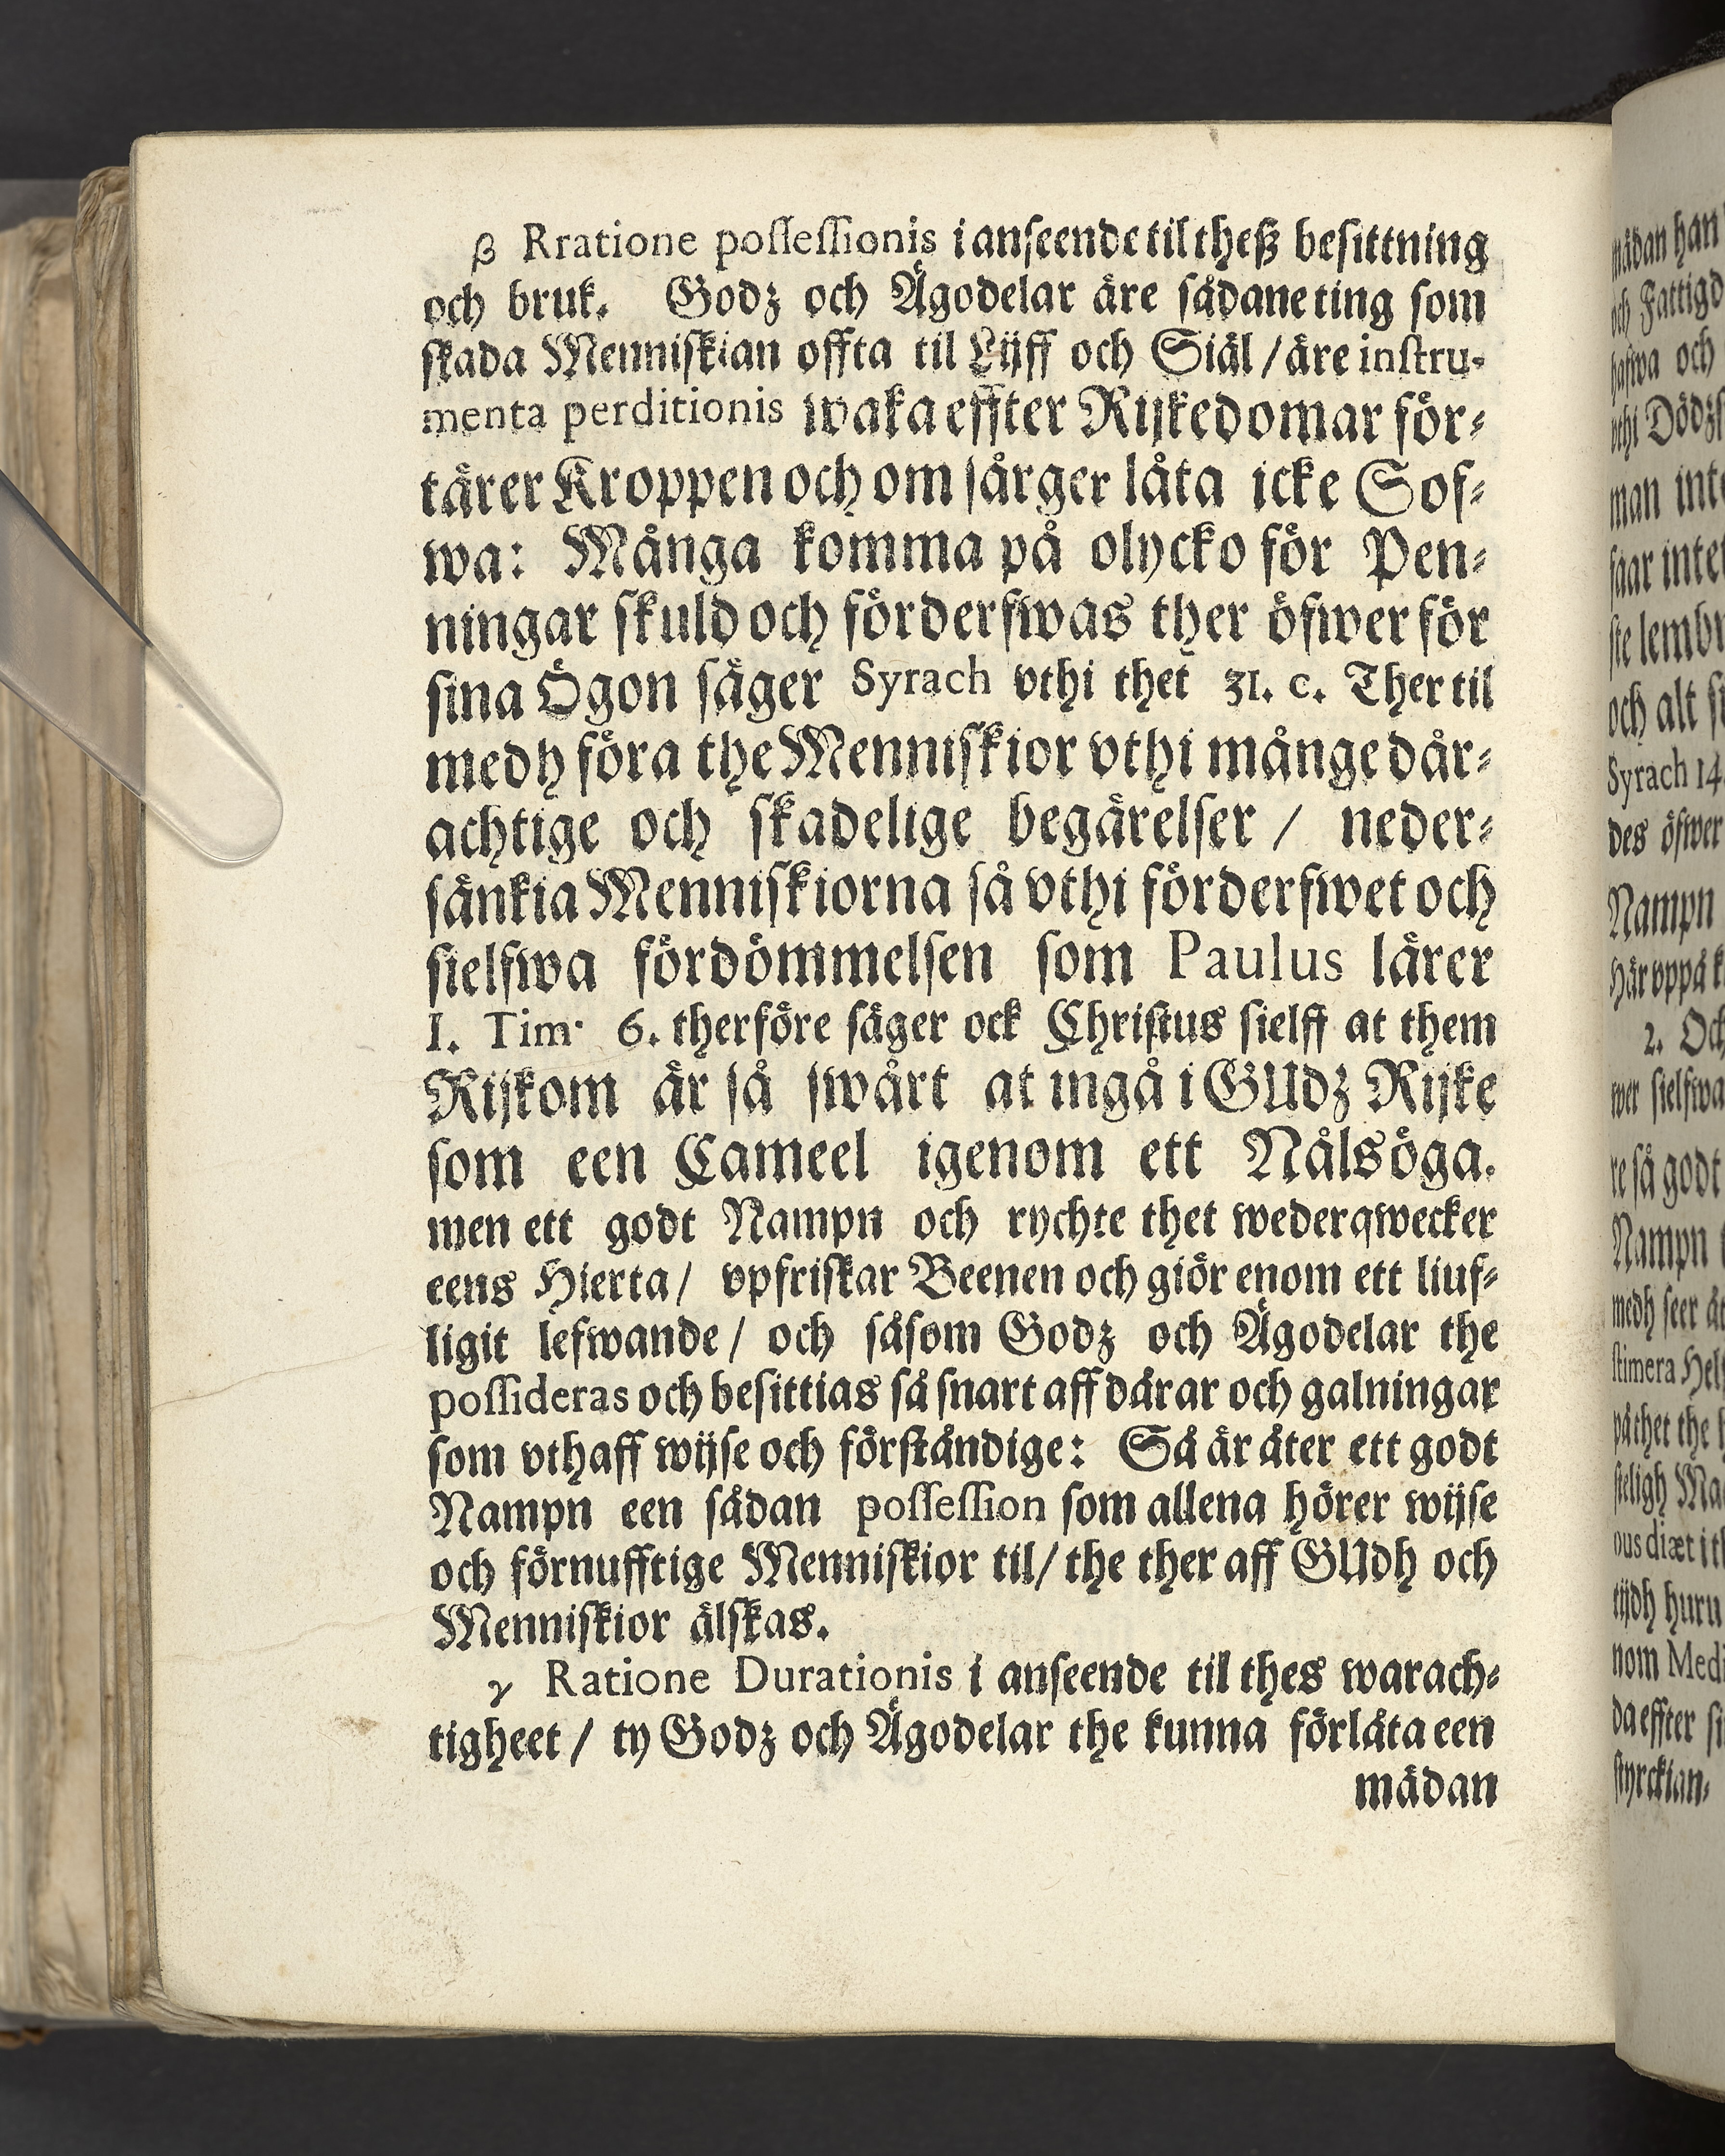 β Rratione poſſeſſionis i anſeende til theß beſittning
och bruk. Godz och Ägodelar äre ſådane ting ſom
ſkada Menniſkian offta til Lijff och Siäl / äre inſtru-
menta perditionis waka effter Rijkedomar för-
tärer Kroppen och om ſårger låta icke Sof-
wa: Många komma på olycko för Pen-
ningar ſkuld och förderfwas ther öfwer för
ſina Ögon ſäger Syrach vthi thet 31. c. Ther til
medh föra the Menniſkior vthi månge dår-
achtige och ſkadelige begärelſer / neder-
ſänkia Menniſkiorna ſå vthi förderfwet och
ſielfwa fördömmelſen ſom Paulus lärer
I. Tim. 6. therföre ſäger ock Chriſtus ſielff at them
Rijkom är ſå ſwårt at ingå i GUdz Rijke
ſom een Cameel igenom ett Nålsöga.
men ett godt Nampn och rychte thet wederqwecker
eens Hierta / vpfriſkar Beenen och giör enom ett liuf-
ligit lefwande / och ſåſom Godz och Ägodelar the
poſſideras och beſittias ſå ſnart aff dårar och galningar
ſom vthaff wijſe och förſtåndige: Så är åter ett godt
Nampn een ſådan poſſeſſion ſom allena hörer wijſe
och förnufftige Menniſkior til / the ther aff GUdh och
Menniſkior älſkas.
γ Ratione Durationis i anſeende til thes warach-
tigheet / ty Godz och Ägodelar the kunna förlåta een
mädan
mädan han
och Fattigd
hafwa och
vthi
man
ſaar
och alt
Syrach 14
des öfwer
Nampn
Här vppå
2. Och
wer ſielfwa
re ſå godt
Nampn
medh ſeer
ſtimera
påthet the
ous diæt i
tijdh huru
nom
da effter